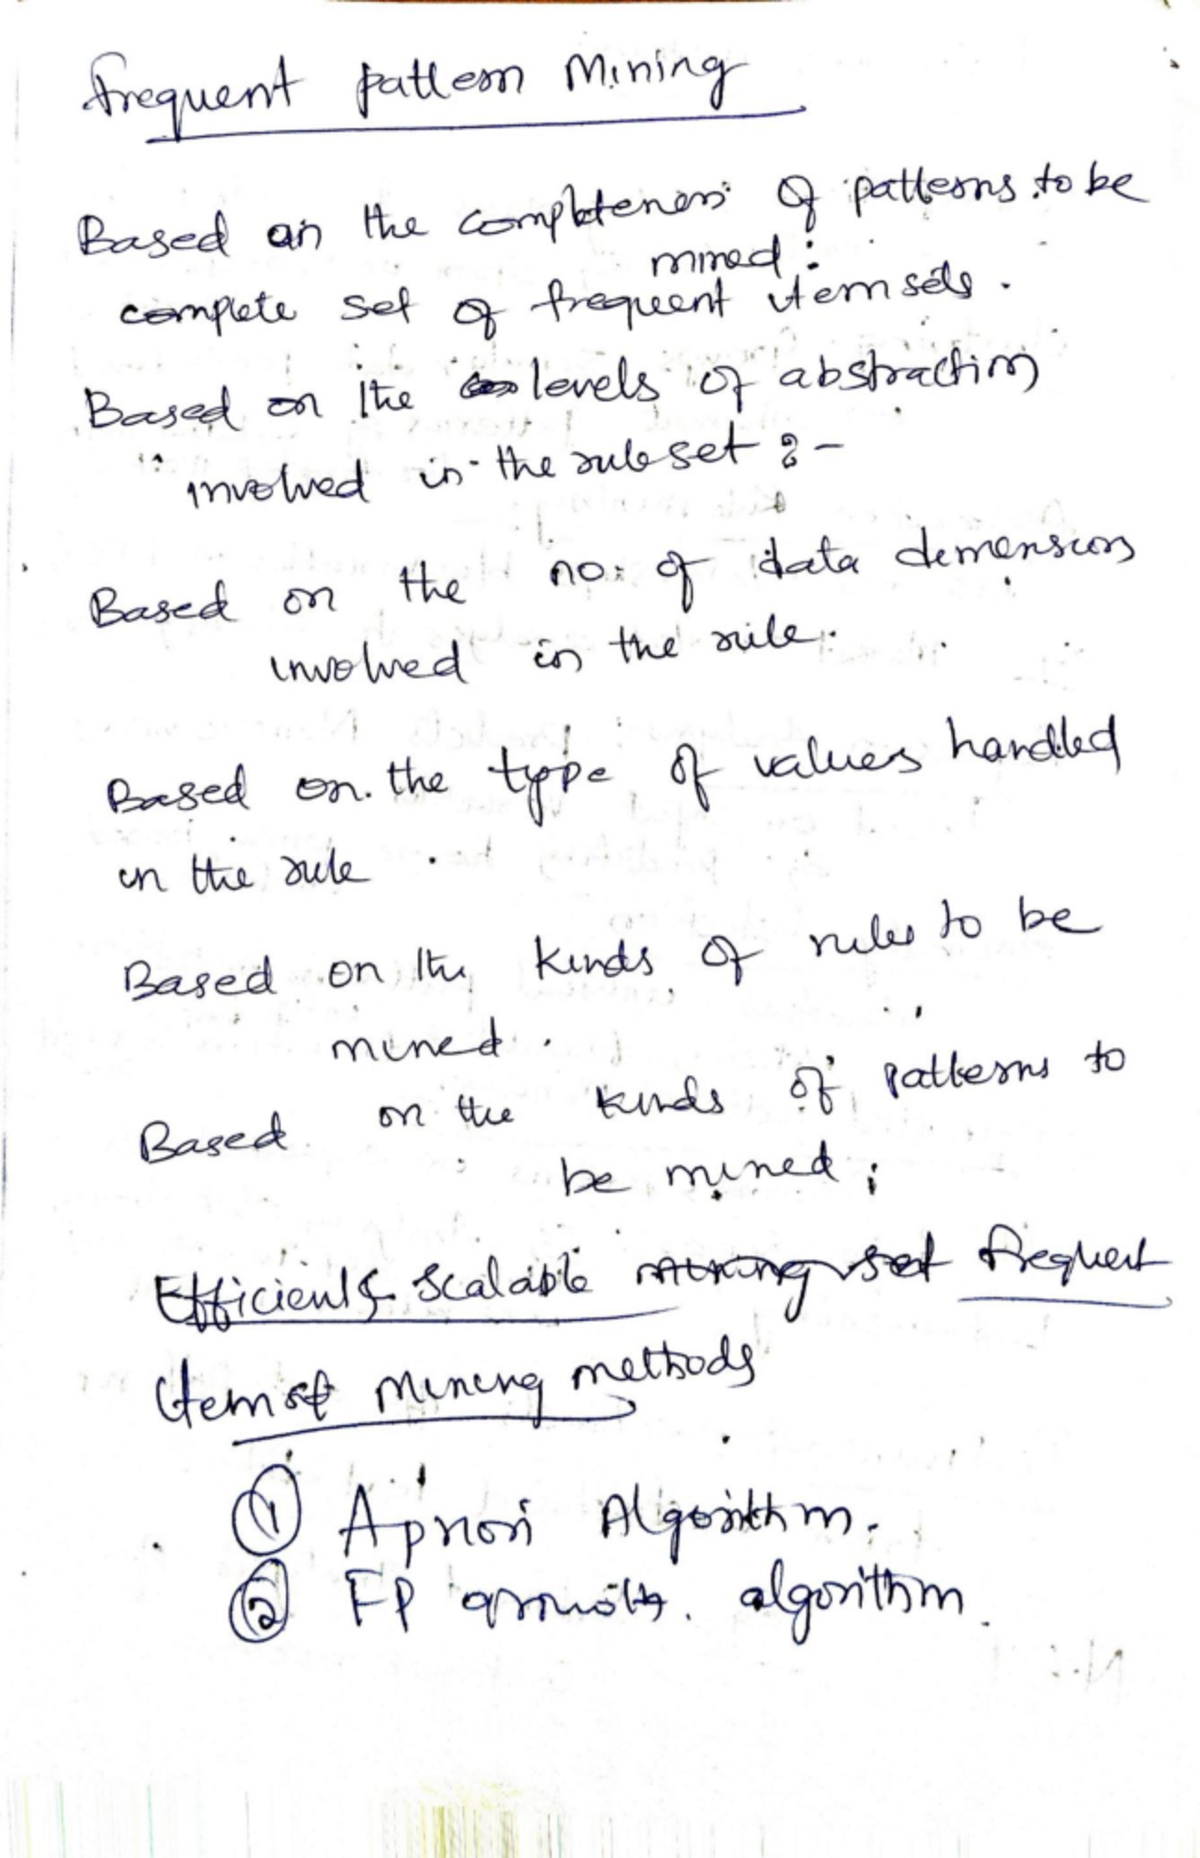 Frequent pattern Mining
Based on the completeness of patterns to be
mined:
complete set of frequent itemsets.
Based on the levels of abstraction
involved in the rule set :-
Based on the no. of data demensions
involved in the rule.
Based on the type of values handled
in the rule
Based on the kinds of rules to be
mined.
Based on the kinds of patterns to
be mined;
Efficient & Scalable mining set frequent
Itemset Mining methods
① Apriori Algorithm.
② FP growth algorithm.